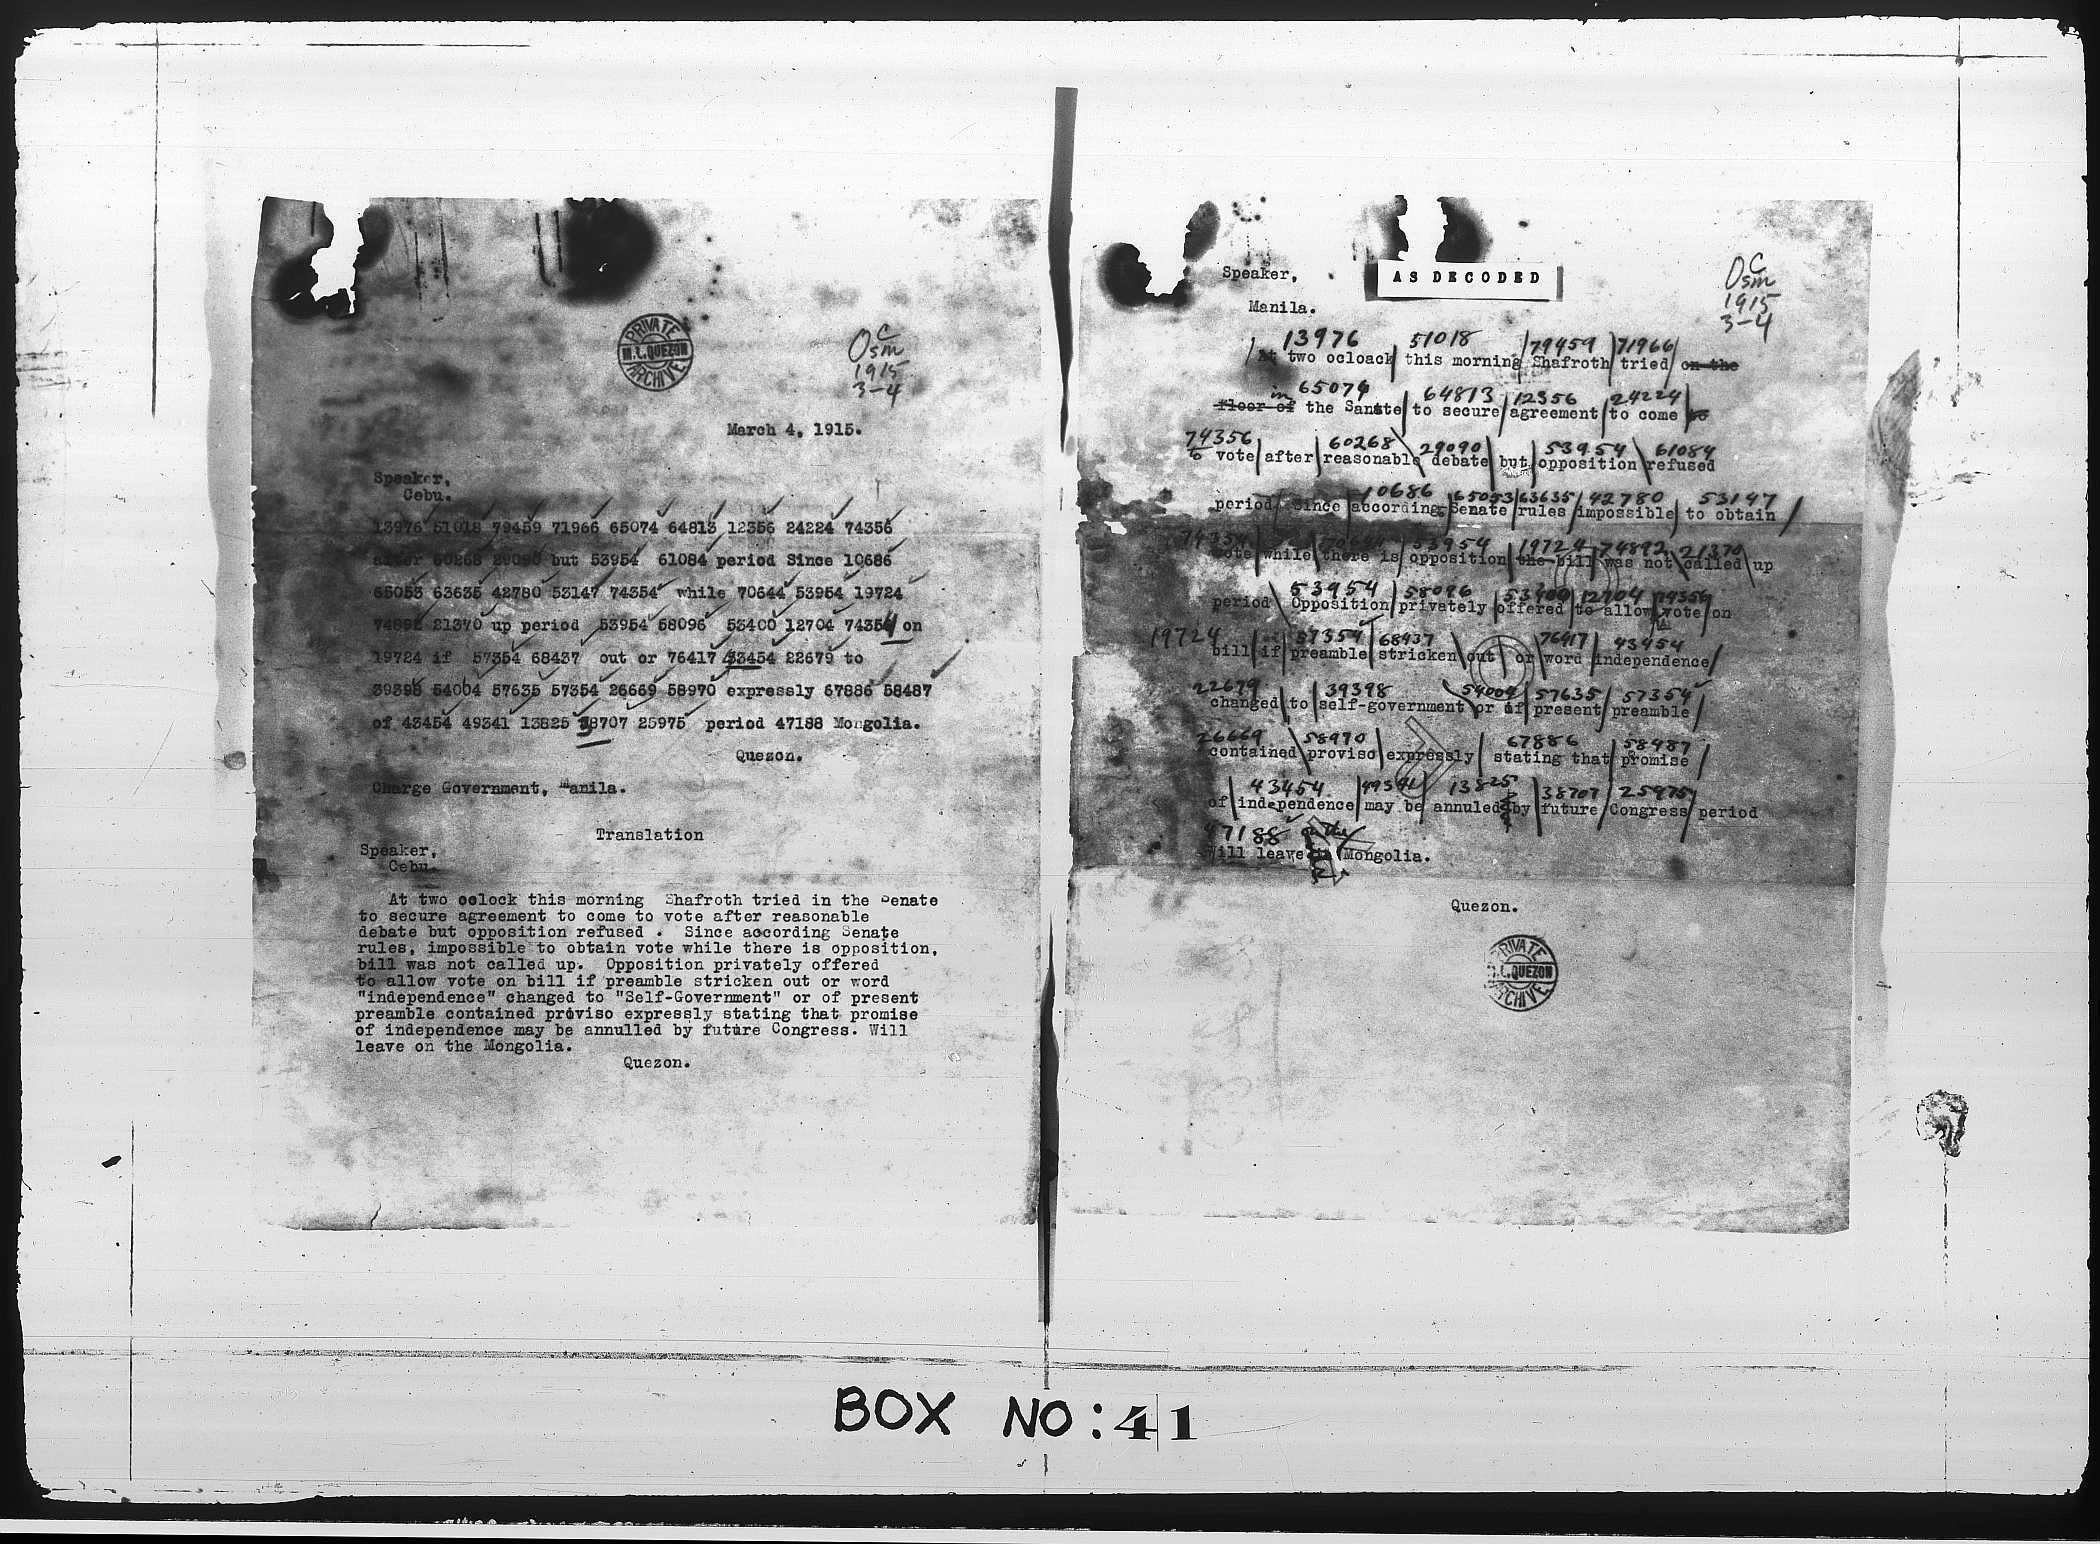 PRIVATE
M.L.QUEZON
ARCHIVE
C
Osm
1915
3-4
March 4, 1915.
Speaker,
Cebu.
13976 51018 79459 71966 65074 64813 12356 24224 74356
after 60268 29090 but 53954 61084 period Since 10686
65053 63635 42780 53147 74354 while 70644 53954 19724
74892 21370 up period 53954 58096 53400 12704 74354 on
19724 if 57354 68437 out or 76417 43454 22679 to
39398 54004 57635 57354 26669 58970 expressly 67886 58487
of 43454 49341 13825 38707 25975 period 47188 Mongolia.
Quezon.
Charge Government, Manila.
Translation
Speaker,
Cebu.
At two oclock this morning Shafroth tried in the Senate
to secure agreement to come to vote after reasonable
debate but opposition refused . Since according Senate
rules, impossible to obtain vote while there is opposition,
bill was not called up. Opposition privately offered
to allow vote on bill if preamble stricken out or word
"independence" changed to "Self-Government" or of present
preamble contained proviso expressly stating that promise
of independence may be annulled by future Congress. Will
leave on the Mongolia.
Quezon.
Speaker,
AS DECODED
Manila.
C
Osm
1915
3-4
13976 51018 79459 71966
At two ocloack this morning Shafroth tried on the
in 65074 64813 12356 24224
floor of the Sanate to secure agreement to come to
74356 60268 29090 53954 61084
to vote after reasonable debate but opposition refused
10686 65053 63635 42780 53147
period Since according Senate rules impossible to obtain
74354 70644 53954 19724 74892 21370
vote while there is opposition the bill was not called up
53954 58096 53400 12704 74356
period Opposition privately offered to allow vote on
19724 57354 68437 76417 43454
bill if preamble stricken out or word independence
22679 39398 54004 57635 57354
changed to self-government or of present preamble
26669 58970 67886 58487
contained proviso expressly stating that promise
43454 49341 13825 38707 25975
of independence may be annuled by future Congress period
47188 on the
Will leave in Mongolia.
Quezon.
PRIVATE
M.L.QUEZON
ARCHIVE
BOX NO:41